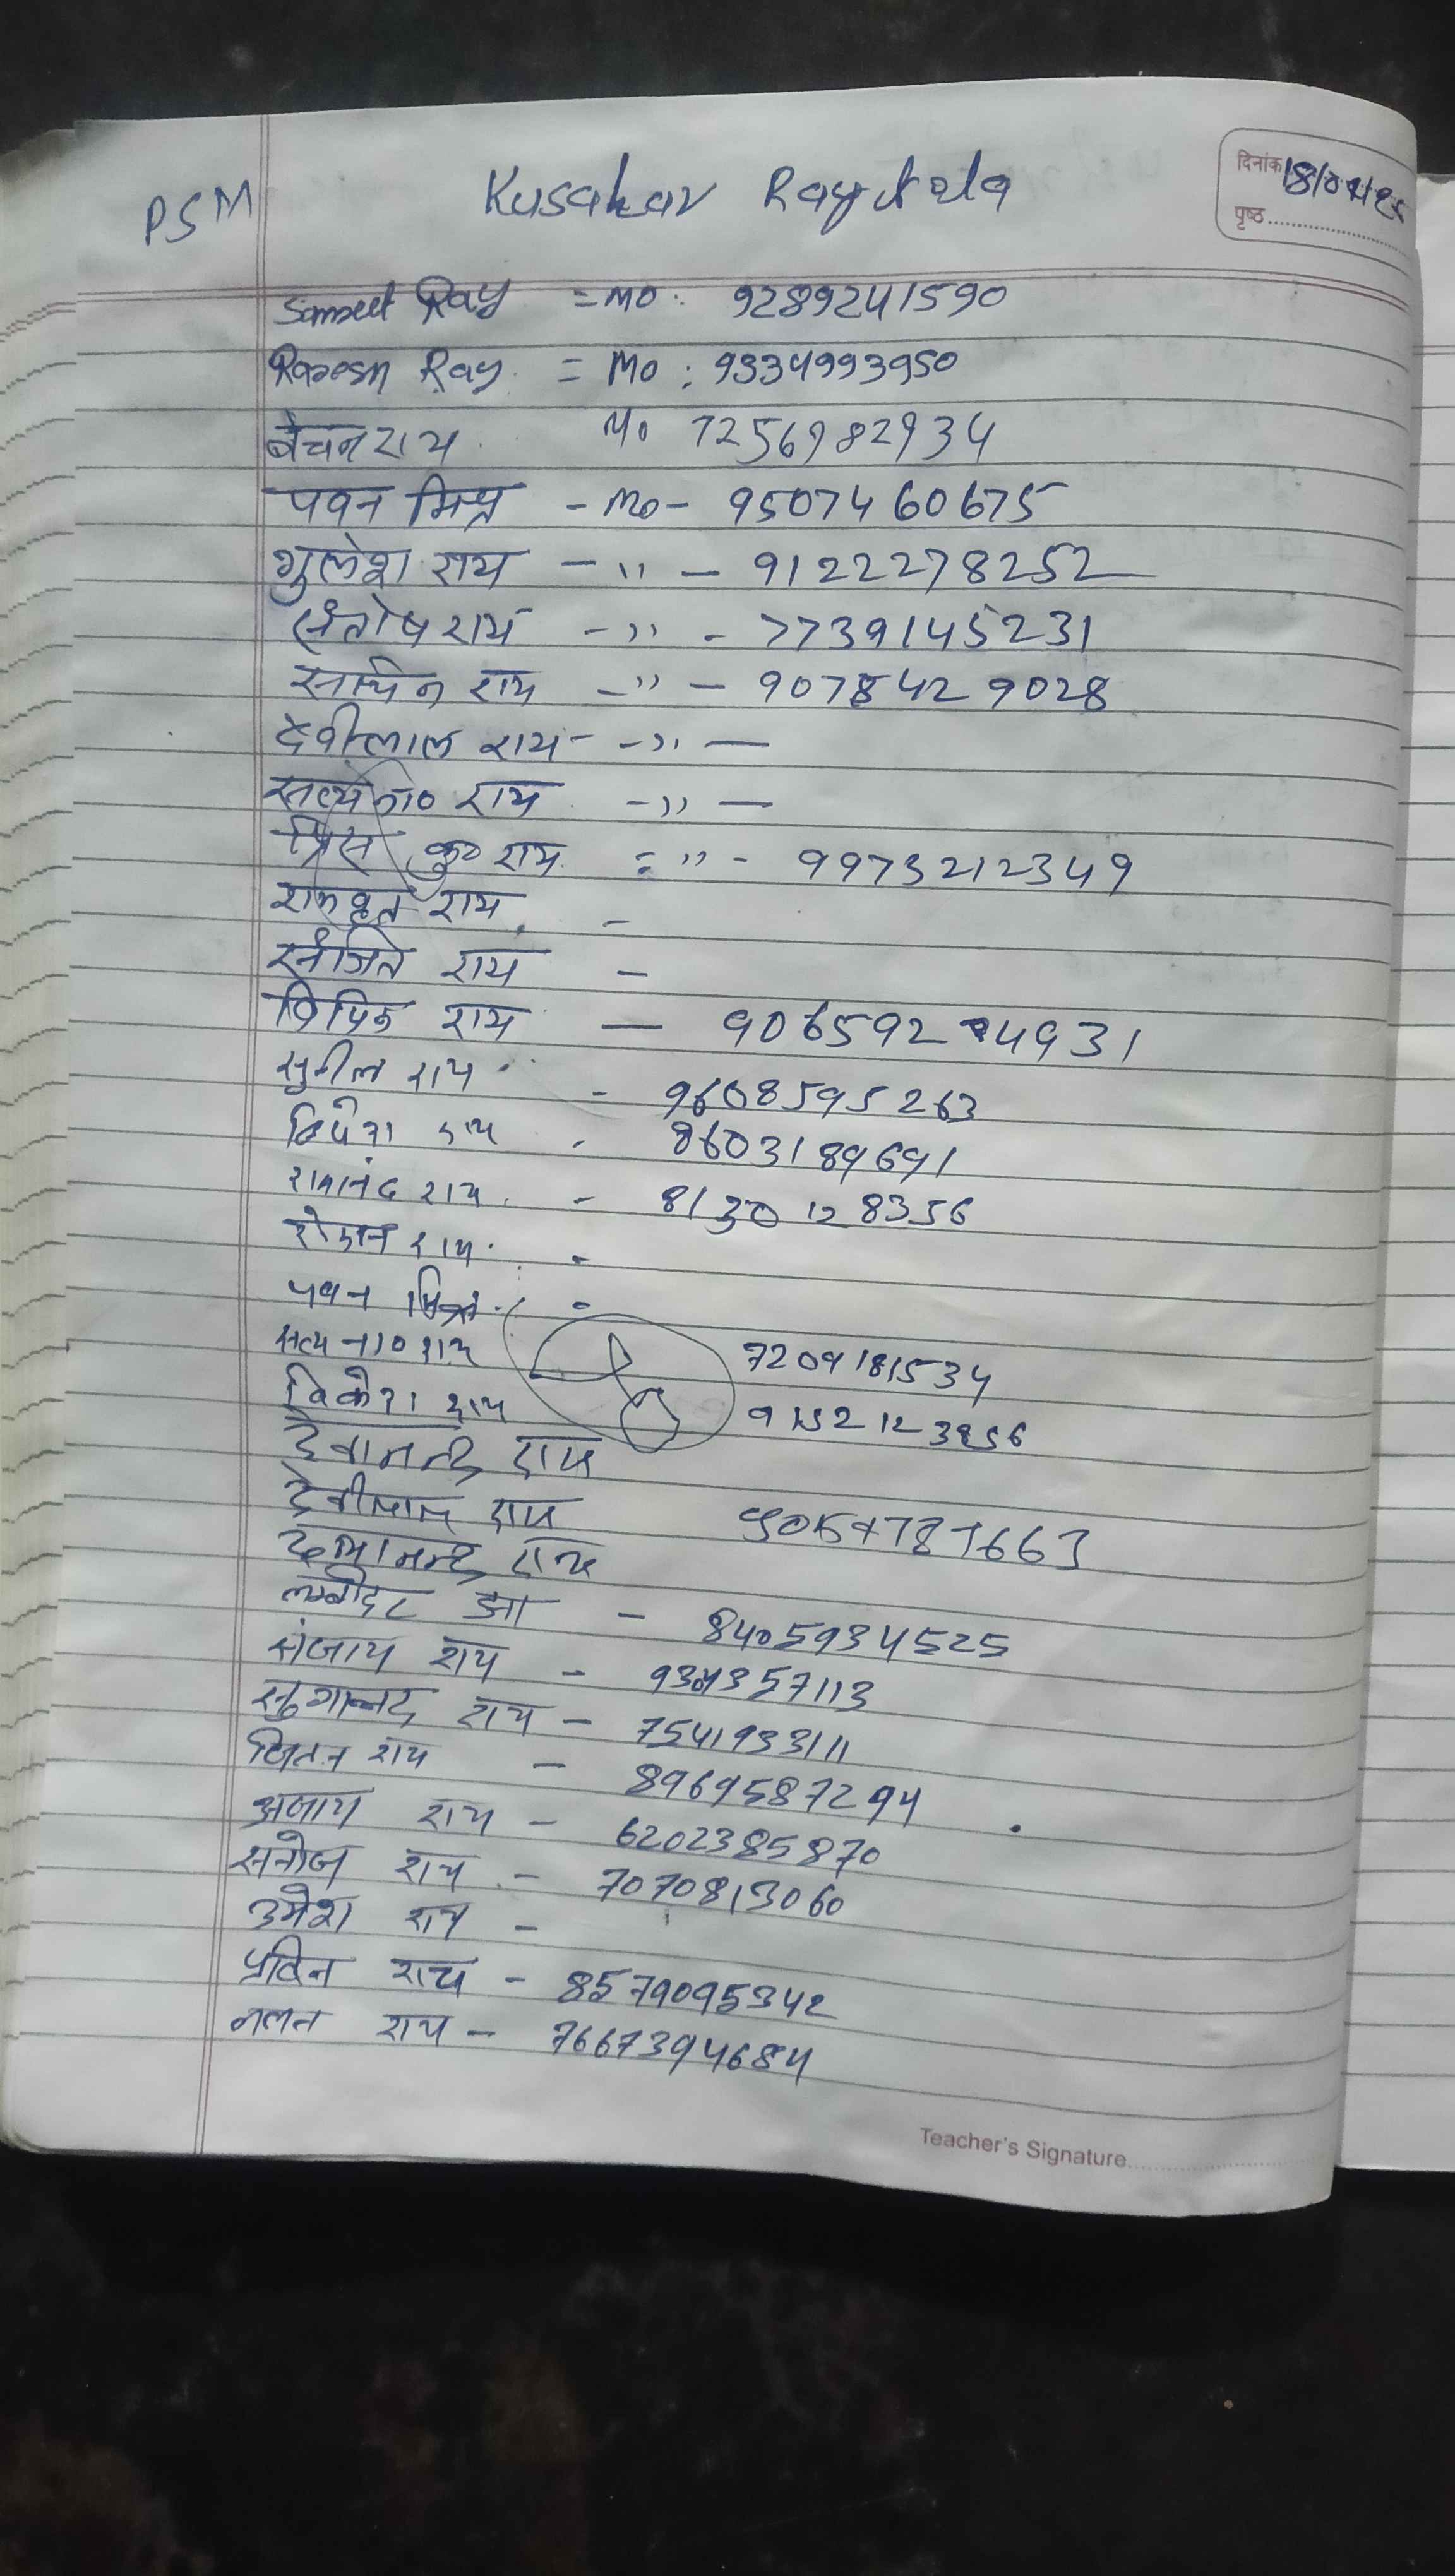 PSM
Kusahar Ray tola
दिनांक 18/04/25
पृष्ठ
Ray = mo : 9289241590
Ray = Mo : 9334993950
बेचन राय Mo 7256982934
पवन मिश्र - Mo - 9507460675
गुलेश राय - " - 9122278252
संतोष राय - " - 7739145231
सचिन राय - " - 9078429028
देवीलाल राय - " -
सत्य ना० राय - " -
प्रिंस कु० राय = " - 9973212349
राय -
रंजित राय -
विपिन राय - 906592 4931
सुनील राय - 9608595263
राय - 8603189691
रामानंद राय - 8130128356
रोशन राय -
पवन मिश्र -
सत्य ना० राय 7209181534
विकेश राय
देवानन्द राय
देवीलाल राय
दयानन्द राय
लम्बोदर झा - 8405934525
संजाय राय -
राय - 7541933111
राय - 8969587294
अजाय राय - 6202385870
मनोज राय - 7070813060
उमेश राय -
प्रविन राय - 8579095342
ललन राय - 7667394684
Teacher's Signature